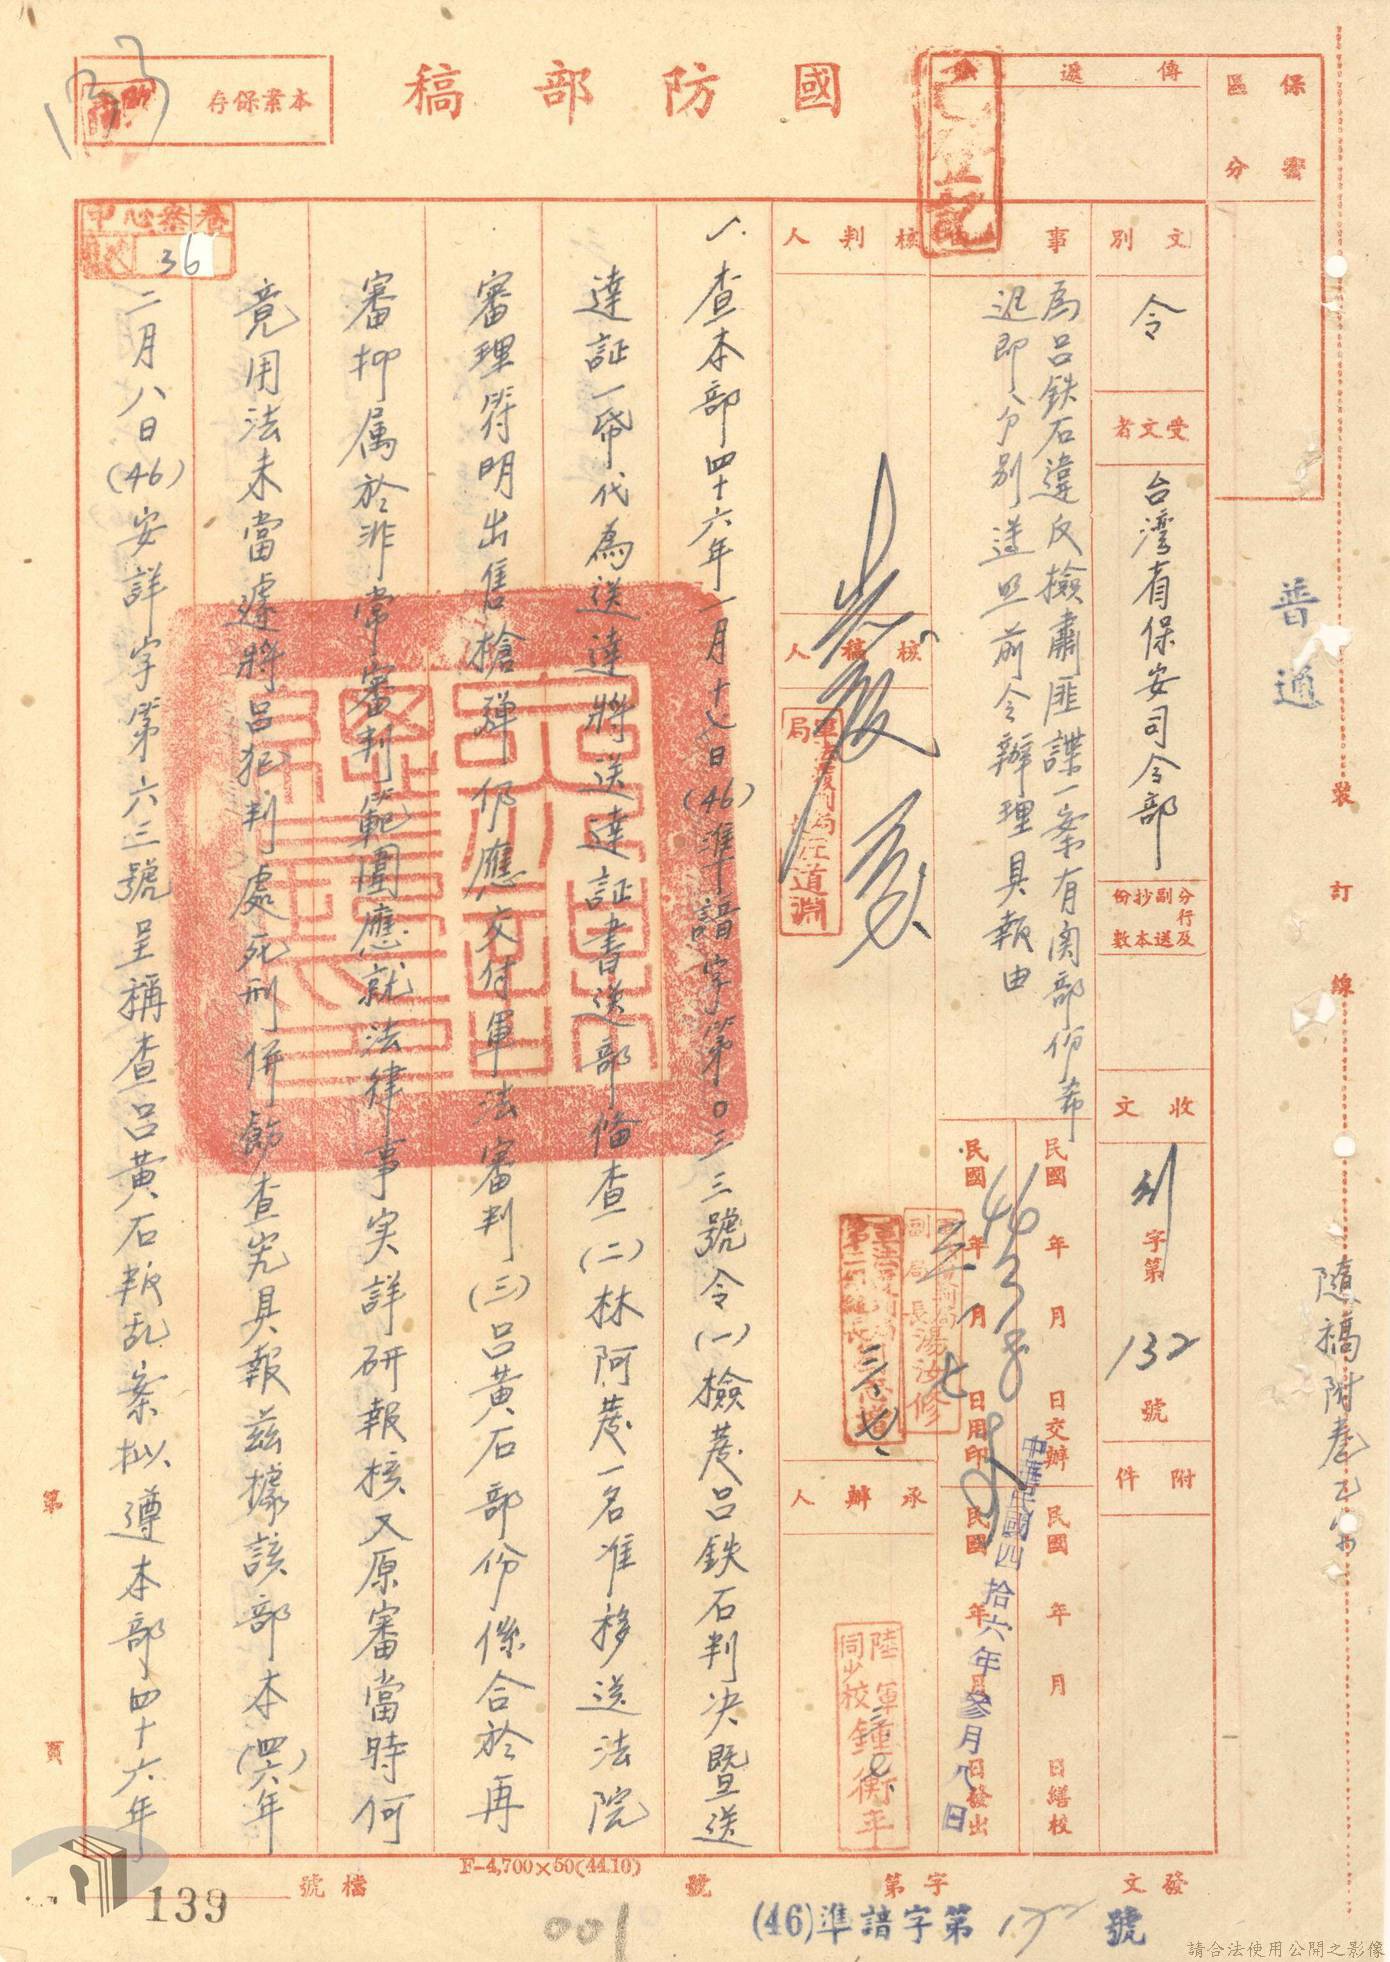 國防部稿
保密
區分
傳遞
已登記
本案保存
文別
令
受文者
台灣省保安司令部
分行及
副本
抄送
份數
收文
判
字第
132
號
附件
事由
為呂鉄石違反檢肅匪諜一案有関部份希
迅即分別遵照前令辦理具報由
民國 年 月 日交辦
民國 年 月 日繕校
民國 年 月 日用印
民國 年 月 日發出
中華民國四拾六年參月八日
核判人
核稿人
汪道淵
副局長
湯汝修
承辦人
陸軍
同少校
鍾衡平
查本部四十六年一月十七日(46)準諳字第0三三號令(一)檢發呂鉄石判決暨送
達証一帋代為送達將送達証書送部俻查(二)林阿發一名准移送法院
審理符明出售槍彈仍應交付軍法審判(三)呂黃石部份係合於再
審抑属於非常審判範圍應就法律事实詳研報核又原審當時何
竟用法未當遽將呂犯判處死刑併飭查究具報茲據該部本(四六)年
二月八日(46)安詳字第六三號呈稱查呂黃石叛乱案拟遵本部四十六年
36
普通
裝訂線
第 頁
檔號
139
F-4,700×50(44.10)
001
發文 字第 號
(46)準諳字第 號
請合法使用公開之影像